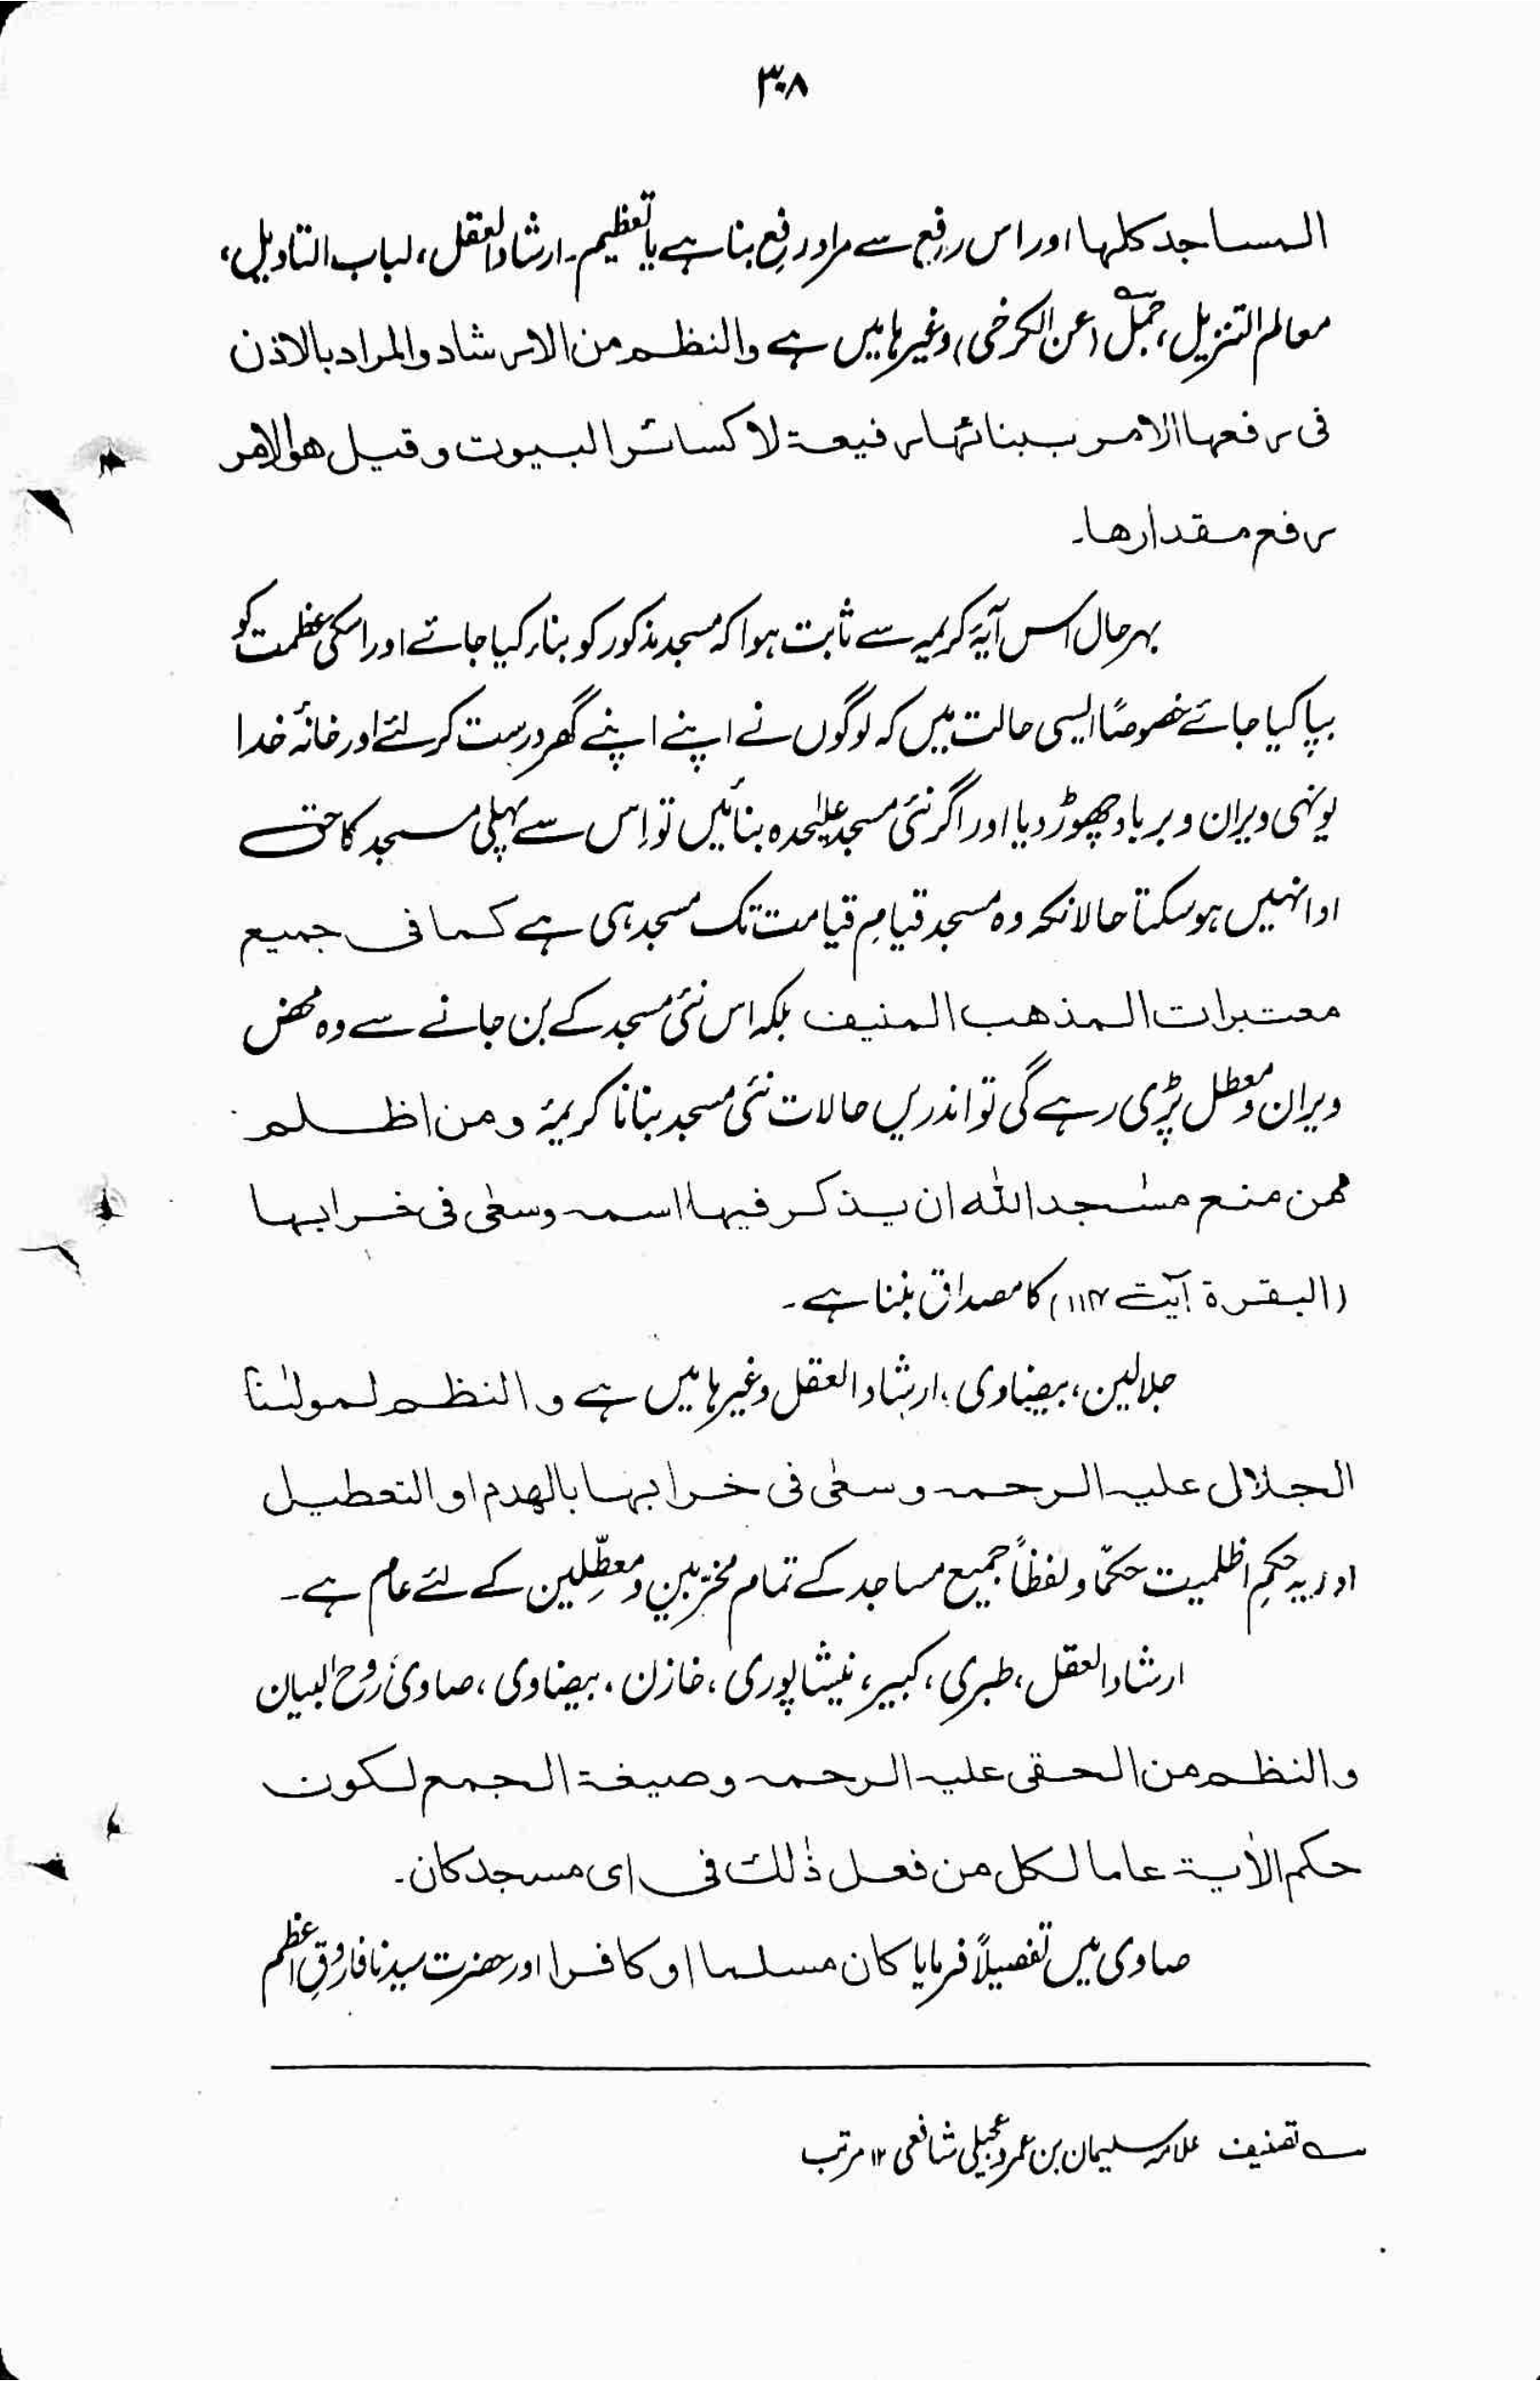 ۳۰۸
المساجد کلها اور اس رفع سے مراد رفعِ بنا ہے یا تعظیم۔ ارشاد العقل، لباب التاویل،
معالم التنزیل، جمل (عن الکرخی) وغیرہا میں ہے والنظم من الارشاد والمراد بالاذن
فی رفعها الامر ببنائها رفیعة لا کسائر البیوت وقیل هو الامر
برفع مقدارها۔
بہرحال اس آیۂ کریمہ سے ثابت ہوا کہ مسجد مذکور کو بناء کیا جائے اور اسکی عظمت کو
بپا کیا جائے خصوصًا ایسی حالت میں کہ لوگوں نے اپنے اپنے گھر درست کر لئے اور خانۂ خدا
یونہی ویران و برباد چھوڑ دیا اور اگر نئی مسجد علیٰحدہ بنائیں تو اِس سے پہلی مسجد کا حق
ادا نہیں ہو سکتا حالانکہ وہ مسجد قیامِ قیامت تک مسجد ہی ہے کما فی جمیع
معتبرات المذهب المنیف بلکہ اس نئی مسجد کے بن جانے سے وہ محض
ویران و معطل پڑی رہے گی تو اندریں حالات نئی مسجد بنانا کریمۂ ومن اظلم
ممن منع مسٰجد الله ان یذکر فیها اسمه وسعٰی فی خرابها
(البقرة آیت ۱۱۴) کا مصداق بننا ہے۔
جلالین، بیضاوی، ارشاد العقل وغیرہا میں ہے والنظم لمولٰنا
الجلال علیه الرحمه وسعٰی فی خرابها بالهدم او التعطیل
اور یہ حکمِ اظلمیت حکمًا و لفظاً جمیع مساجد کے تمام مخرّبین و معطّلین کے لئے عام ہے۔
ارشاد العقل، طبری، کبیر، نیشاپوری، خازن، بیضاوی، صاوی، روح البیان
والنظم من الحقی علیه الرحمه وصیغة الجمع لکون
حکم الاٰیة عاما لکل من فعل ذٰلك فی ای مسجد کان۔
صاوی میں تفصیلاً فرمایا کان مسلما او کافرا اور حضرت سیدنا فاروقِ اعظم
ے تصنیف علامہ سلیمان بن عمر عجیلی شافعی ۱۲ مرتب